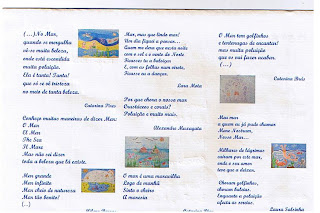 (...) No Mar,
quando se mergulha
vê-se muita beleza,
onde está escondida
muita poluição.
Ela é tanta! Tanta!
que só se vê tristeza
no meio de tanta beleza.
Catarina Pires
Conheço muitas maneiras de dizer Mar:
O Mar
El Mar
The Sea
Il Mare
Mas não sei dizer
toda a beleza que lá existe.
Mar grande
Mar infinito
Mar cheio de natureza
Mar tão bonito!
(...)
Mar, mar que lindo mar!
Um dia fiquei a pensar...
Quem me dera que nesta noite
com o sol e o vento do Norte
Ficasse eu a baloiçar
E, com as folhas num vira,
Ficasse eu a dançar.
Lara Mota
Por que chora o nosso mar
Crustáceos e corais?
Poluição e muito mais.
Alexandra
O mar é uma maravilha
Logo de manhã
Sinto o cheiro
A maresia
O Mar tem golfinhos
e tartarugas de encantar!
mas muita poluição
que os vai fazer acabar.
(...)
Catarina
Mar mar
a quem eu já pude chamar
Mare Nostrum,
Nosso Mar...
Milhares de lágrimas
caíram por este mar,
onde o seu amor
teve que o deixar.
Choram golfinhos,
choram baleias,
Enquanto a poluição
afecta as sereias.
Laura